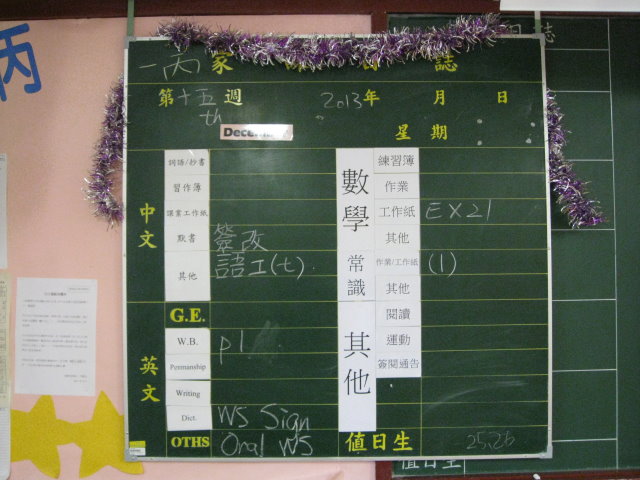 丙
日誌
一丙 家 誌
第十五週 2013年 月 日
th
Dece
星期
中文
詞語/抄書
習作簿
課業工作紙
默書 簽改
其他 語工(七)
英文
G.E.
W.B. p1
Penmanship
Writing
Dict. WS Sign
OTHS Oral WS
數學
練習簿
作業
工作紙 EX21
其他
常識
作業/工作紙 (1)
其他
其他
閱讀
運動
簽閱通告
值日生 25,26
值日生